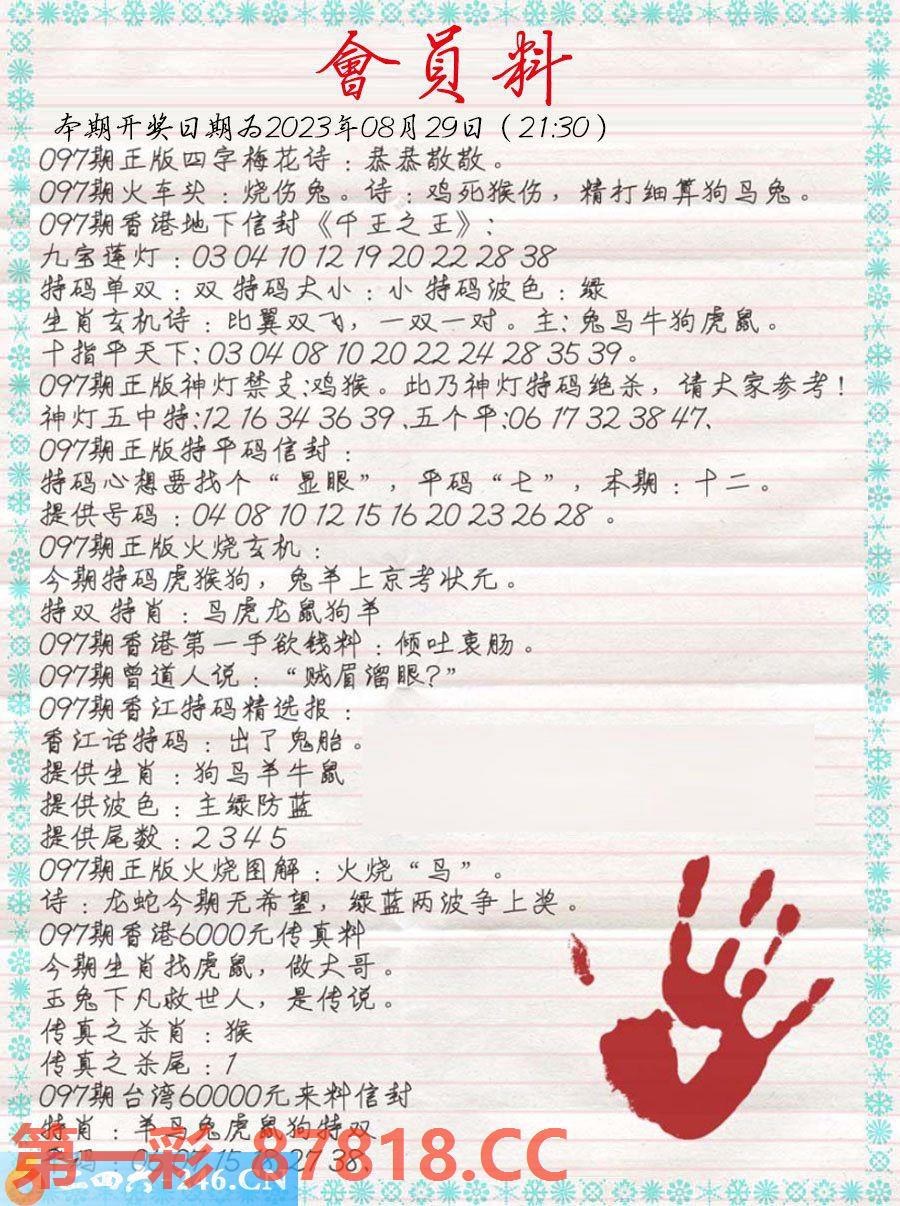 會員料
本期开奖日期为2023年08月29日（21:30）
097期正版四字梅花诗：恭恭敬敬。
097期火车头：烧伤兔。诗：鸡死猴伤，精打细算狗马兔。
097期香港地下信封《千王之王》：
九宝莲灯：03 04 10 12 19 20 22 28 38
特码单双：双 特码大小：小 特码波色：绿
生肖玄机诗：比翼双飞，一双一对。主：兔马牛狗虎鼠。
十指平天下：03 04 08 10 20 22 24 28 35 39。
097期正版神灯禁支：鸡猴。此乃神灯特码绝杀，请大家参考！
神灯五中特：12 16 34 36 39、五个平：06 17 32 38 47、
097期正版特平码信封：
特码心想要找个“显眼”，平码“七”，本期：十二。
提供号码：04 08 10 12 15 16 20 23 26 28 。
097期正版火烧玄机：
今期特码虎猴狗，兔羊上京考状元。
特双 特肖：马虎龙鼠狗羊
097期香港第一手欲钱料：倾吐衷肠。
097期曾道人说：“贼眉溜眼？”
097期香江特码精选报：
香江话特码：出了鬼胎。
提供生肖：狗马羊牛鼠
提供波色：主绿防蓝
提供尾数：2 3 4 5
097期正版火烧图解：火烧“鸟”。
诗：龙蛇今期无希望，绿蓝两波争上奖。
097期香港6000元传真料
今期生肖找虎鼠，做大哥。
玉兔下凡救世人，是传说。
传真之杀肖：猴
传真之杀尾：1
097期台湾60000元来料信封
特肖：羊马兔虎鼠狗特双
15 27 38、
第一彩 87818.CC
246.CN